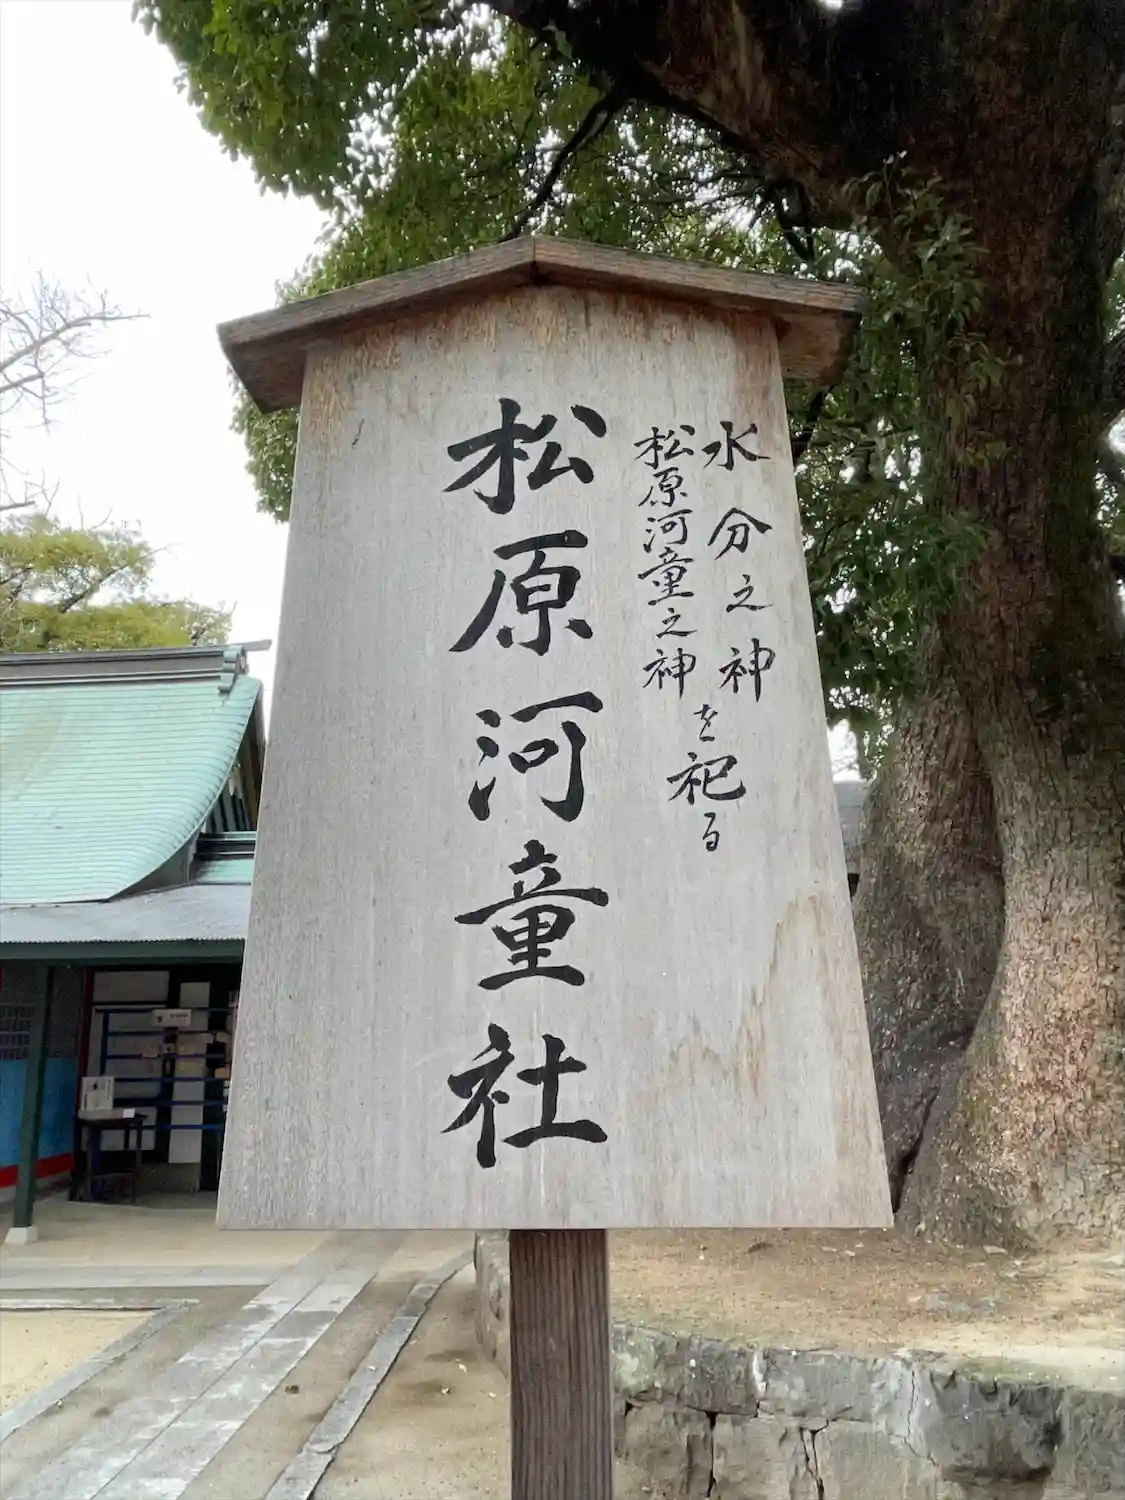 水分之神
松原河童之神
を祀る
松原河童社